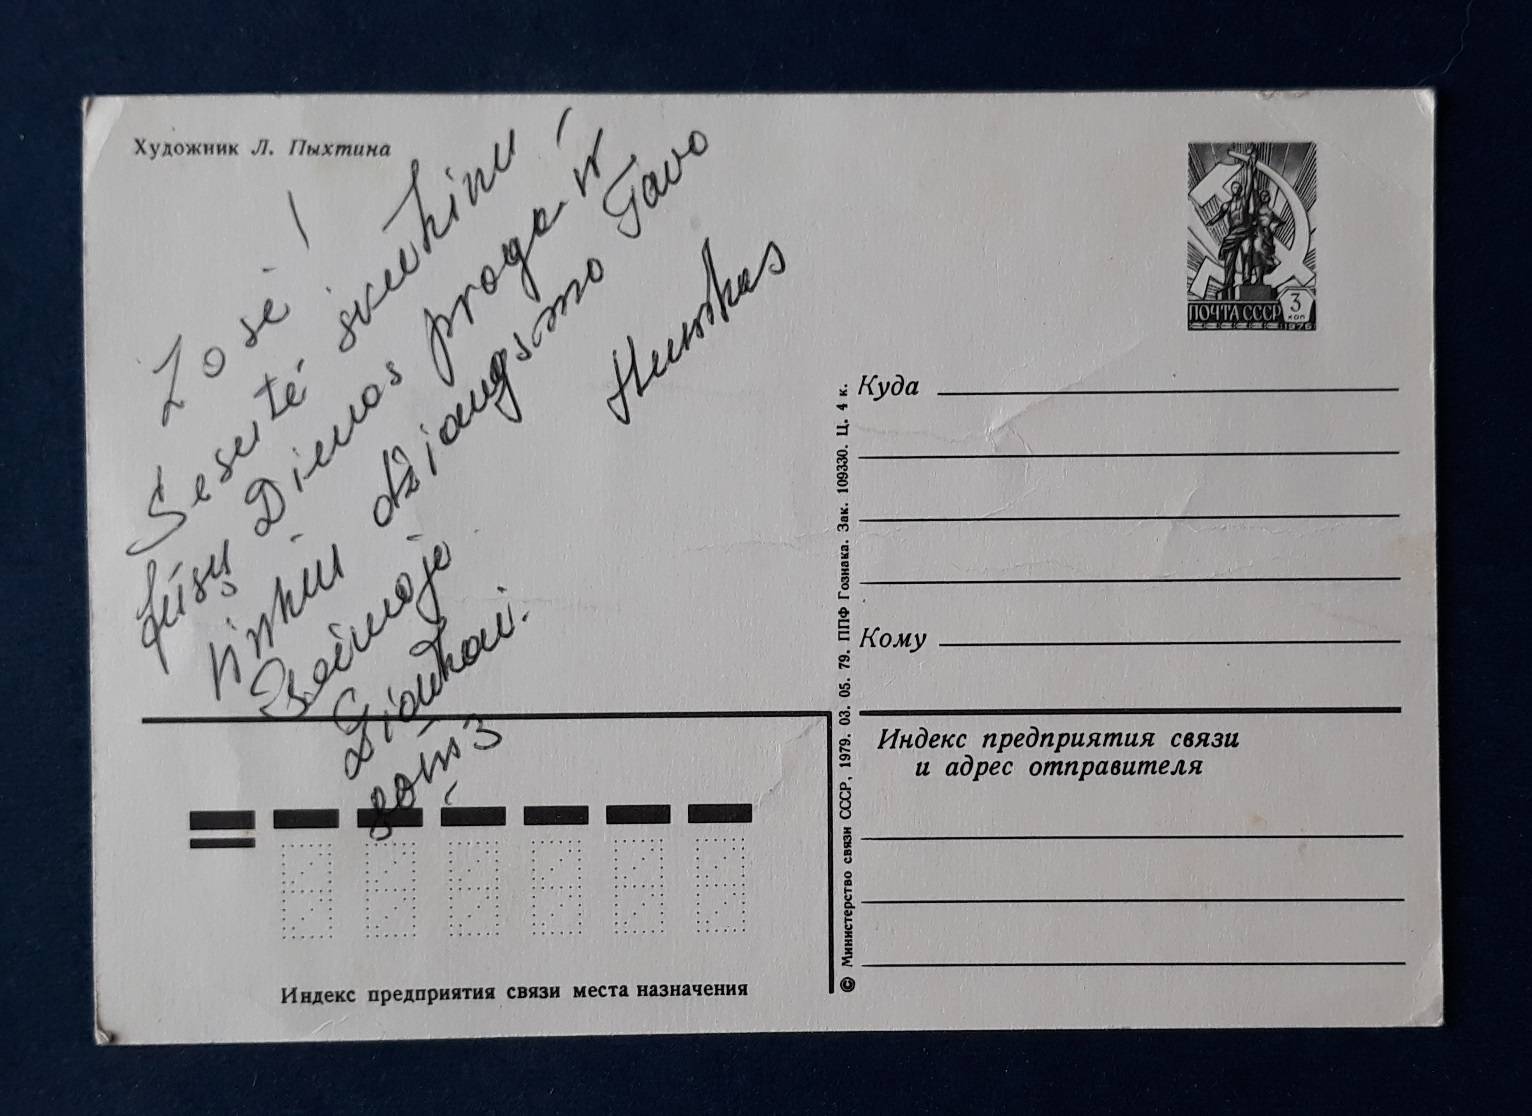 Художник Л. Пыхтина
Zose!
Sesutė sveikinu
Jūsų Dienos proga ir
linkiu džiaugsmo Tavo
šeimoje
ПОЧТА СССР
3
коп
1976
Куда
Кому
Индекс предприятия связи
и адрес отправителя
© Министерство связи СССР, 1979. 03. 05. 79. ППФ Гознака. Зак. 109330. Ц. 4 к.
Индекс предприятия связи места назначения